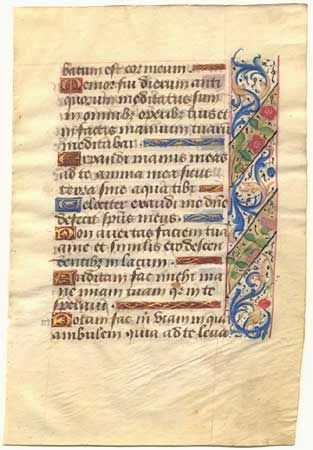 batum est cor meum.
Memor fui dierum anti
quorum meditatus sum
in omnibz operibz tuis et
in factis manuum tuarum
meditabar.
Expandi manus meas
ad te anima mea sicut
terra sine aqua tibi.
Velociter exaudi me dne
defecit spūs meus.
Non avertas faciem tuam
a me et similis ero descen
dentibz in lacum.
Auditam fac michi ma
ne miam tuam qz in te
speravi.
Notam fac m̄ viam in qua
ambulem quia ad te leva